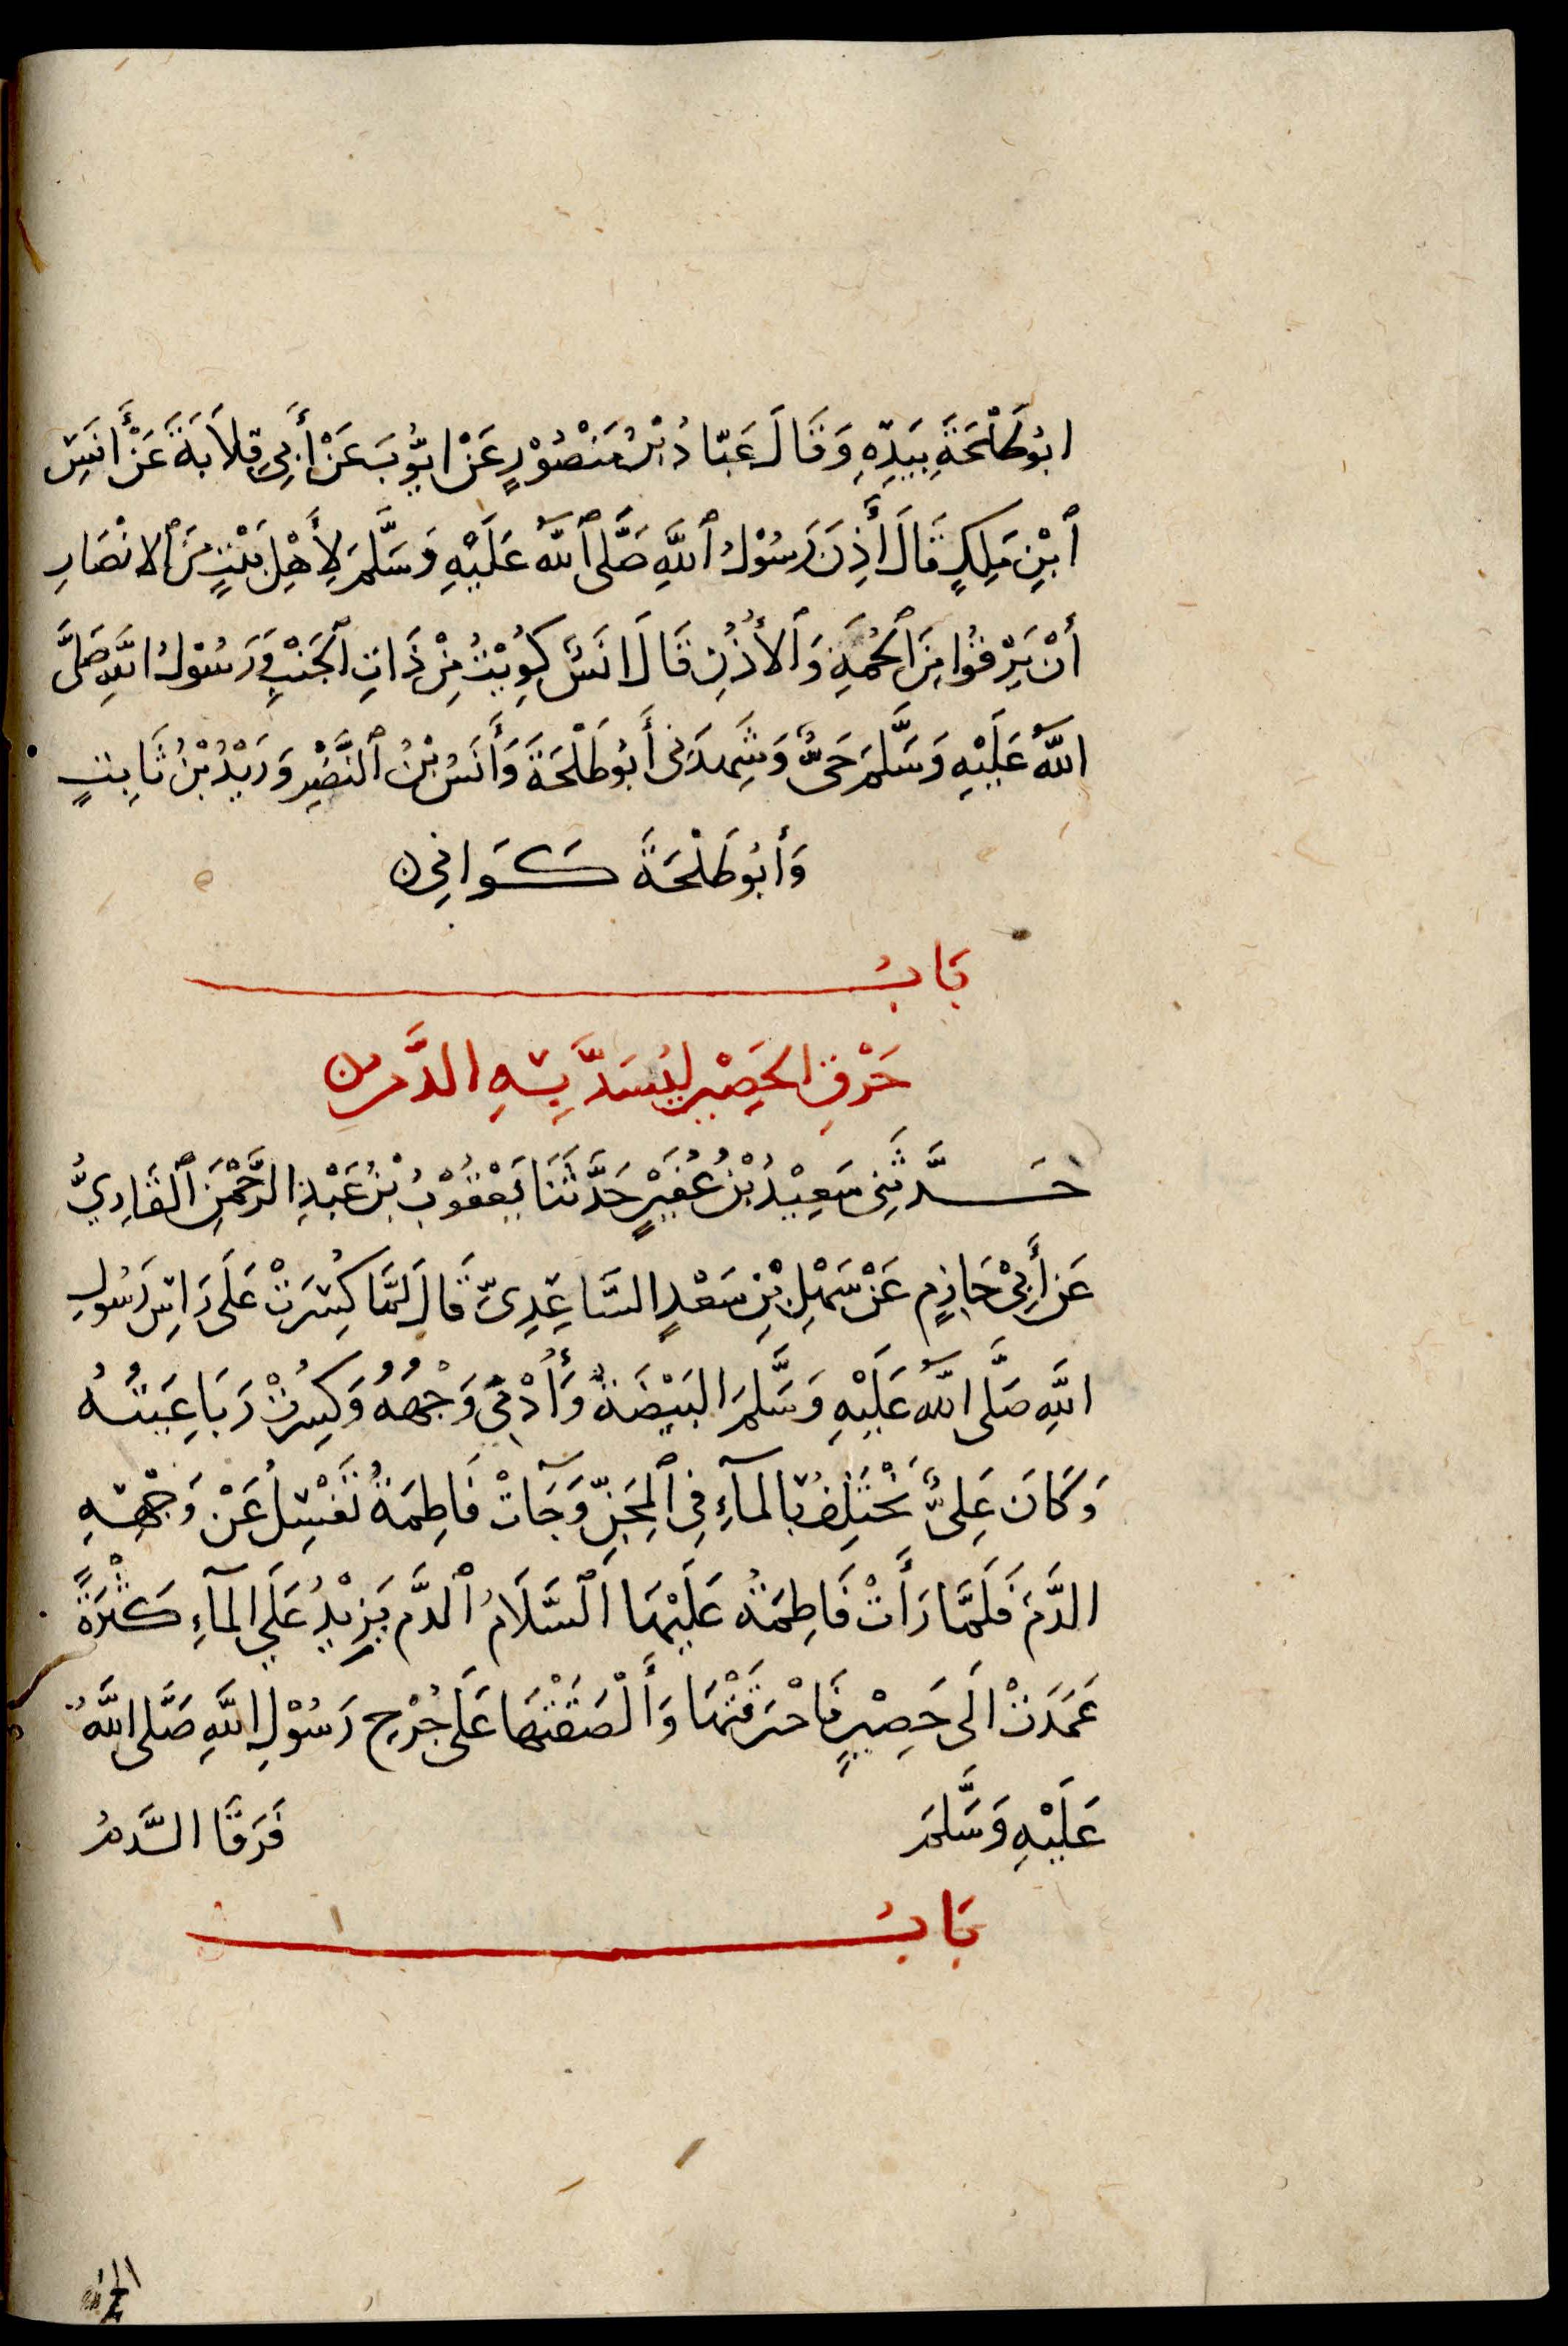 ابُوطَلْحَةَ بِيَدِهِ وَقَالَ عَبَّادُ بْنُ مَنْصُوْرٍ عَنْ ايُّوبَ عَنْ أَبِي قِلاَبَةَ عَنْ أَنَسِ
ٱبْنِ مَلِكٍ قَالَ أَذِنَ رَسُوْلُ ٱللَّهِ صَلَّى ٱللَّهُ عَلَيْهِ وَسَلَّمَ لِأَهْلِ بَيْتٍ مِنَ ٱلانْصَارِ
أَنْ يَرْقُوا مِنَ ٱلْحُمَةِ وَٱلأُذُنِ قَالَ انَسٌ كُوِيْتُ مِنْ ذَاتِ ٱلْجَنْبِ وَرَسُوْلُ اللَّهِ صَلَّى
اللَّهُ عَلَيْهِ وَسَلَّمَ حَىٌّ وَشَهِدَنِى أَبُو طَلْحَةَ وَأَنَسُ بْنُ ٱلنَّضْرِ وَزَيْدُ بْنُ ثَابِتٍ
وَأَبُو طَلْحَةَ كَوَانِى
بَابُ
حَرْقِ الحَصِيْرِ لِيُسَدَّ بِهِ الدَّمُ
حَدَّثَنِى سَعِيْدُ بْنُ عُفَيْرٍ حَدَّثَنَا يَعْقُوْبُ بْنُ عَبْدِ الرَّحْمٰنِ ٱلْقَارِيُّ
عَنْ أَبِيْ حَازِمٍ عَنْ سَهْلِ بْنِ سَعْدٍ السَّاعِدِىِّ قَالَ لَمَّا كُسِرَتْ عَلَى رَاسِ رَسُولِ
اللَّهِ صَلَّى اللَّهُ عَلَيْهِ وَسَلَّمَ البَيْضَةُ وَأُدْمِىَ وَجْهُهُ وَكُسِرَتْ رَبَاعِيَتُهُ
وَكَانَ عَلِىٌّ يَخْتَلِفُ بِالمآءِ فِى ٱلْمِجَنِّ وَجَآتْ فَاطِمَةُ تَغْسِلُ عَنْ وَجْهِهِ
الدَّمَ فَلَمَّا رَأَتْ فَاطِمَةُ عَلَيْهَا ٱلسَّلَامُ ٱلدَّمَ يَزِيْدُ عَلَى المآءِ كَثْرَةً
عَمَدَتْ الَى حَصِيْرٍ فَاحْرَقَتْهَا وَأَلْصَقَتْهَا عَلَى جُرْحِ رَسُوْلِ اللَّهِ صَلَّى اللَّهُ
عَلَيْهِ وَسَلَّمَ فَرَقَا الدَّمُ
بَابُ